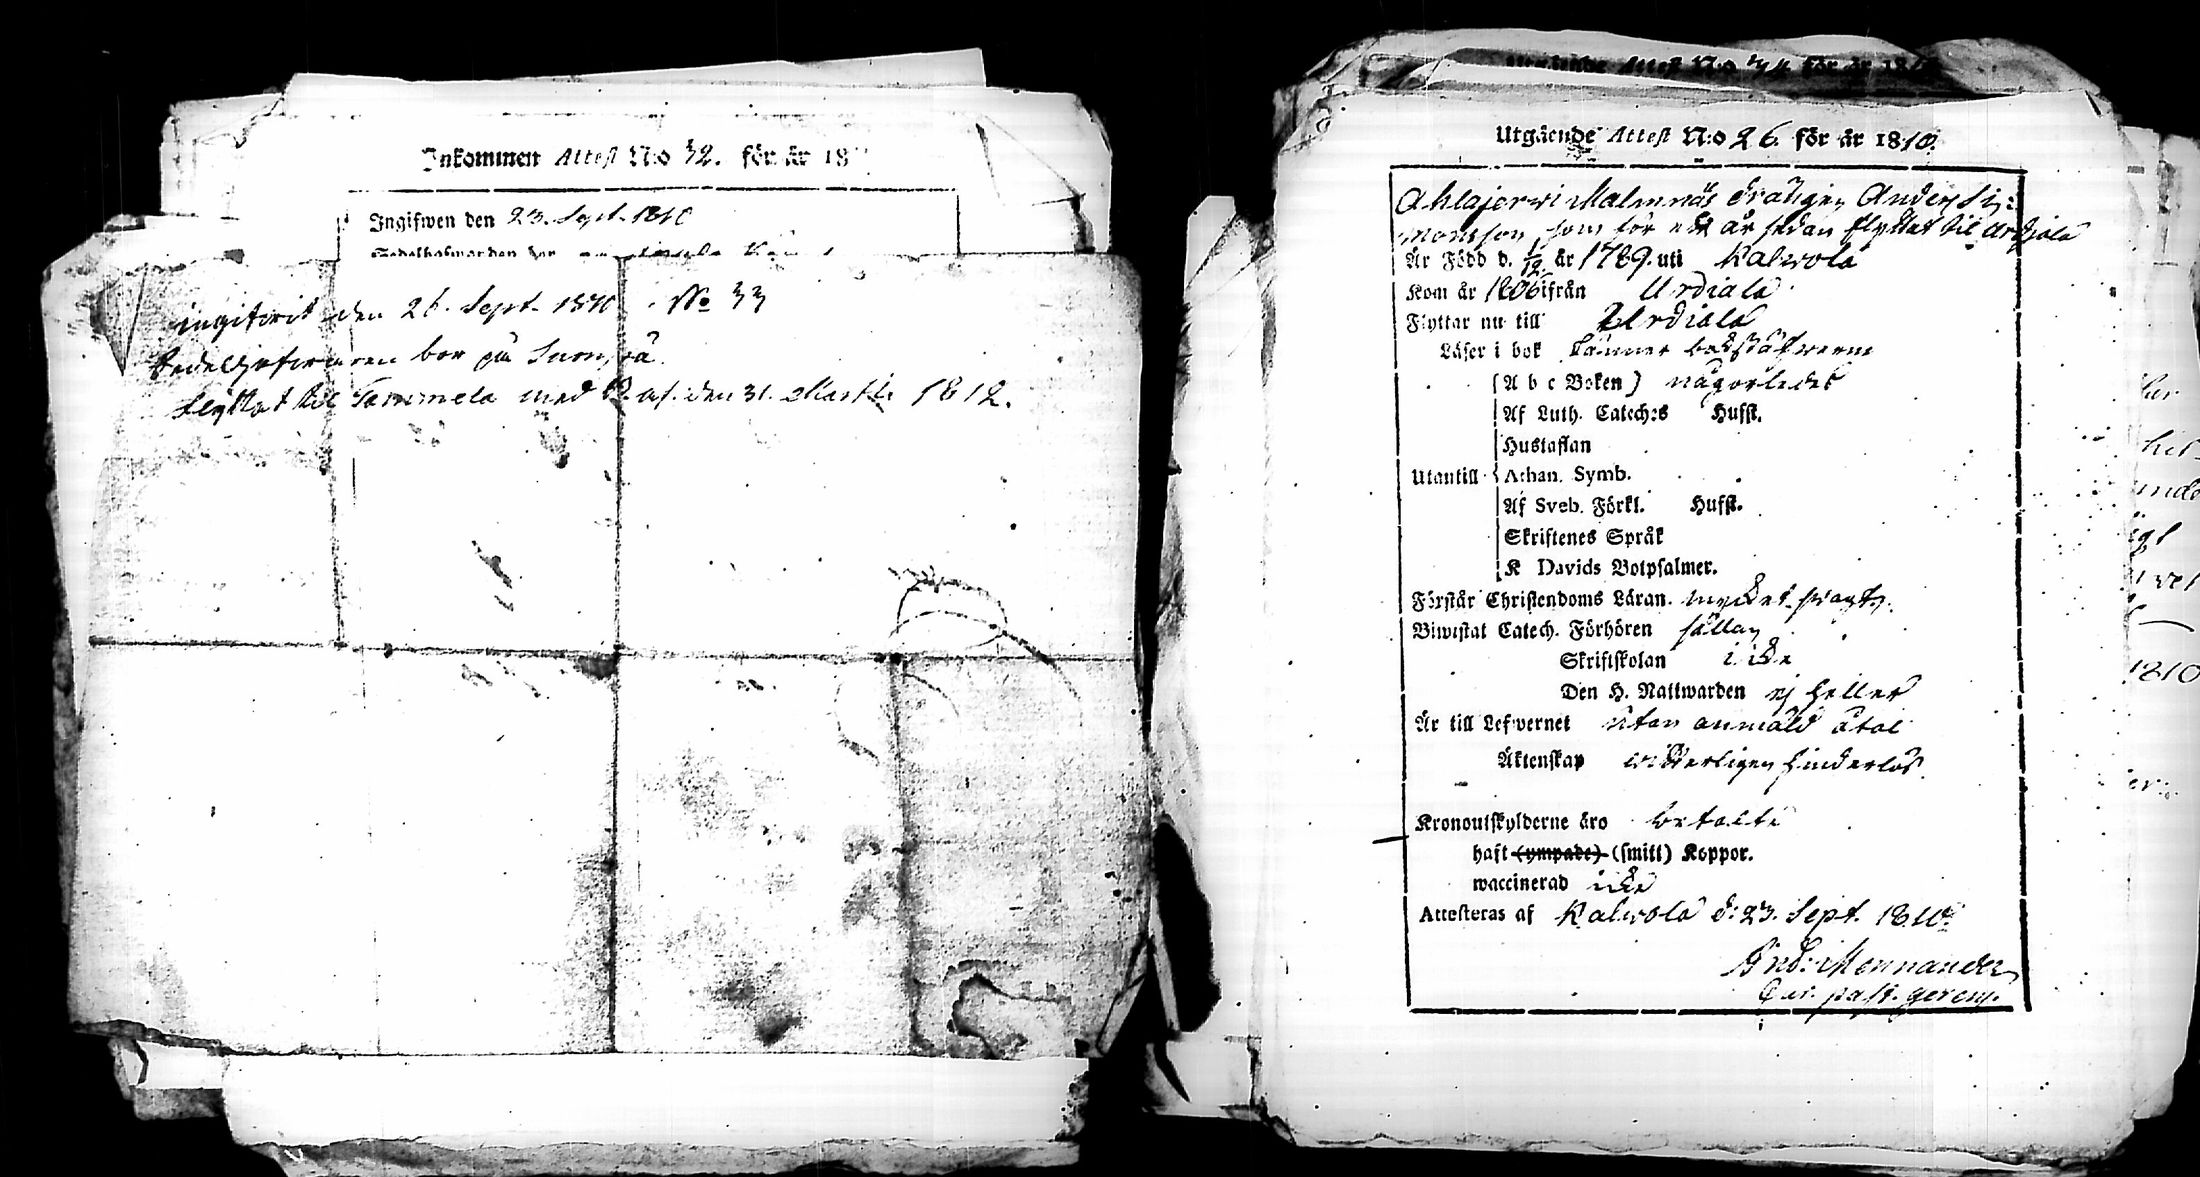 Inkommen Attest N:o 32. för år 18
Ingifwen den 23. Sept. 1810
Sedelhafwarden bor
ingifwit den 26. Sept. 1810. No 33
Sedelhafwaren bor på
flyttat til Tammela med den 31. Martii 1812.
Utgående Attest N:o 34 för år 1810
Utgående Attest N:o 26. för år 1810.
Ahlajerwi Malmnäs drängen Anders Si-
monsson, som för ett år sedan flyttat til Urdiala
Är Född d. 1/12 år 1789. uti Kalwola
Kom år 1806 ifrån Urdiala
Flyttar nu till Urdiala
Läser i bok känner bokstäfwerne
(A b c Boken) någorledes
Af Luth. Catech:s Hufst.
Hustaflan
Utantill Athan. Symb.
Af Sveb. Förkl. Hufst.
Skriftenes Språk
K Davids Botpsalmer.
Förstår Christendoms Läran. mycket swagt.
Biwistat Catech. Förhören sällan
Skriftskolan icke
Den H. Nattwarden ej heller
Är till Lefwernet utan anmäld åtal
Äktenskap witterligen hinderlös.
Kronoutskylderne äro betalte
haft (ympade) (smitt) Koppor.
waccinerad icke
Attesteras af Kalwola d: 23. Sept. 1810.
And: Mennander
Cur. past. gerens.
1810